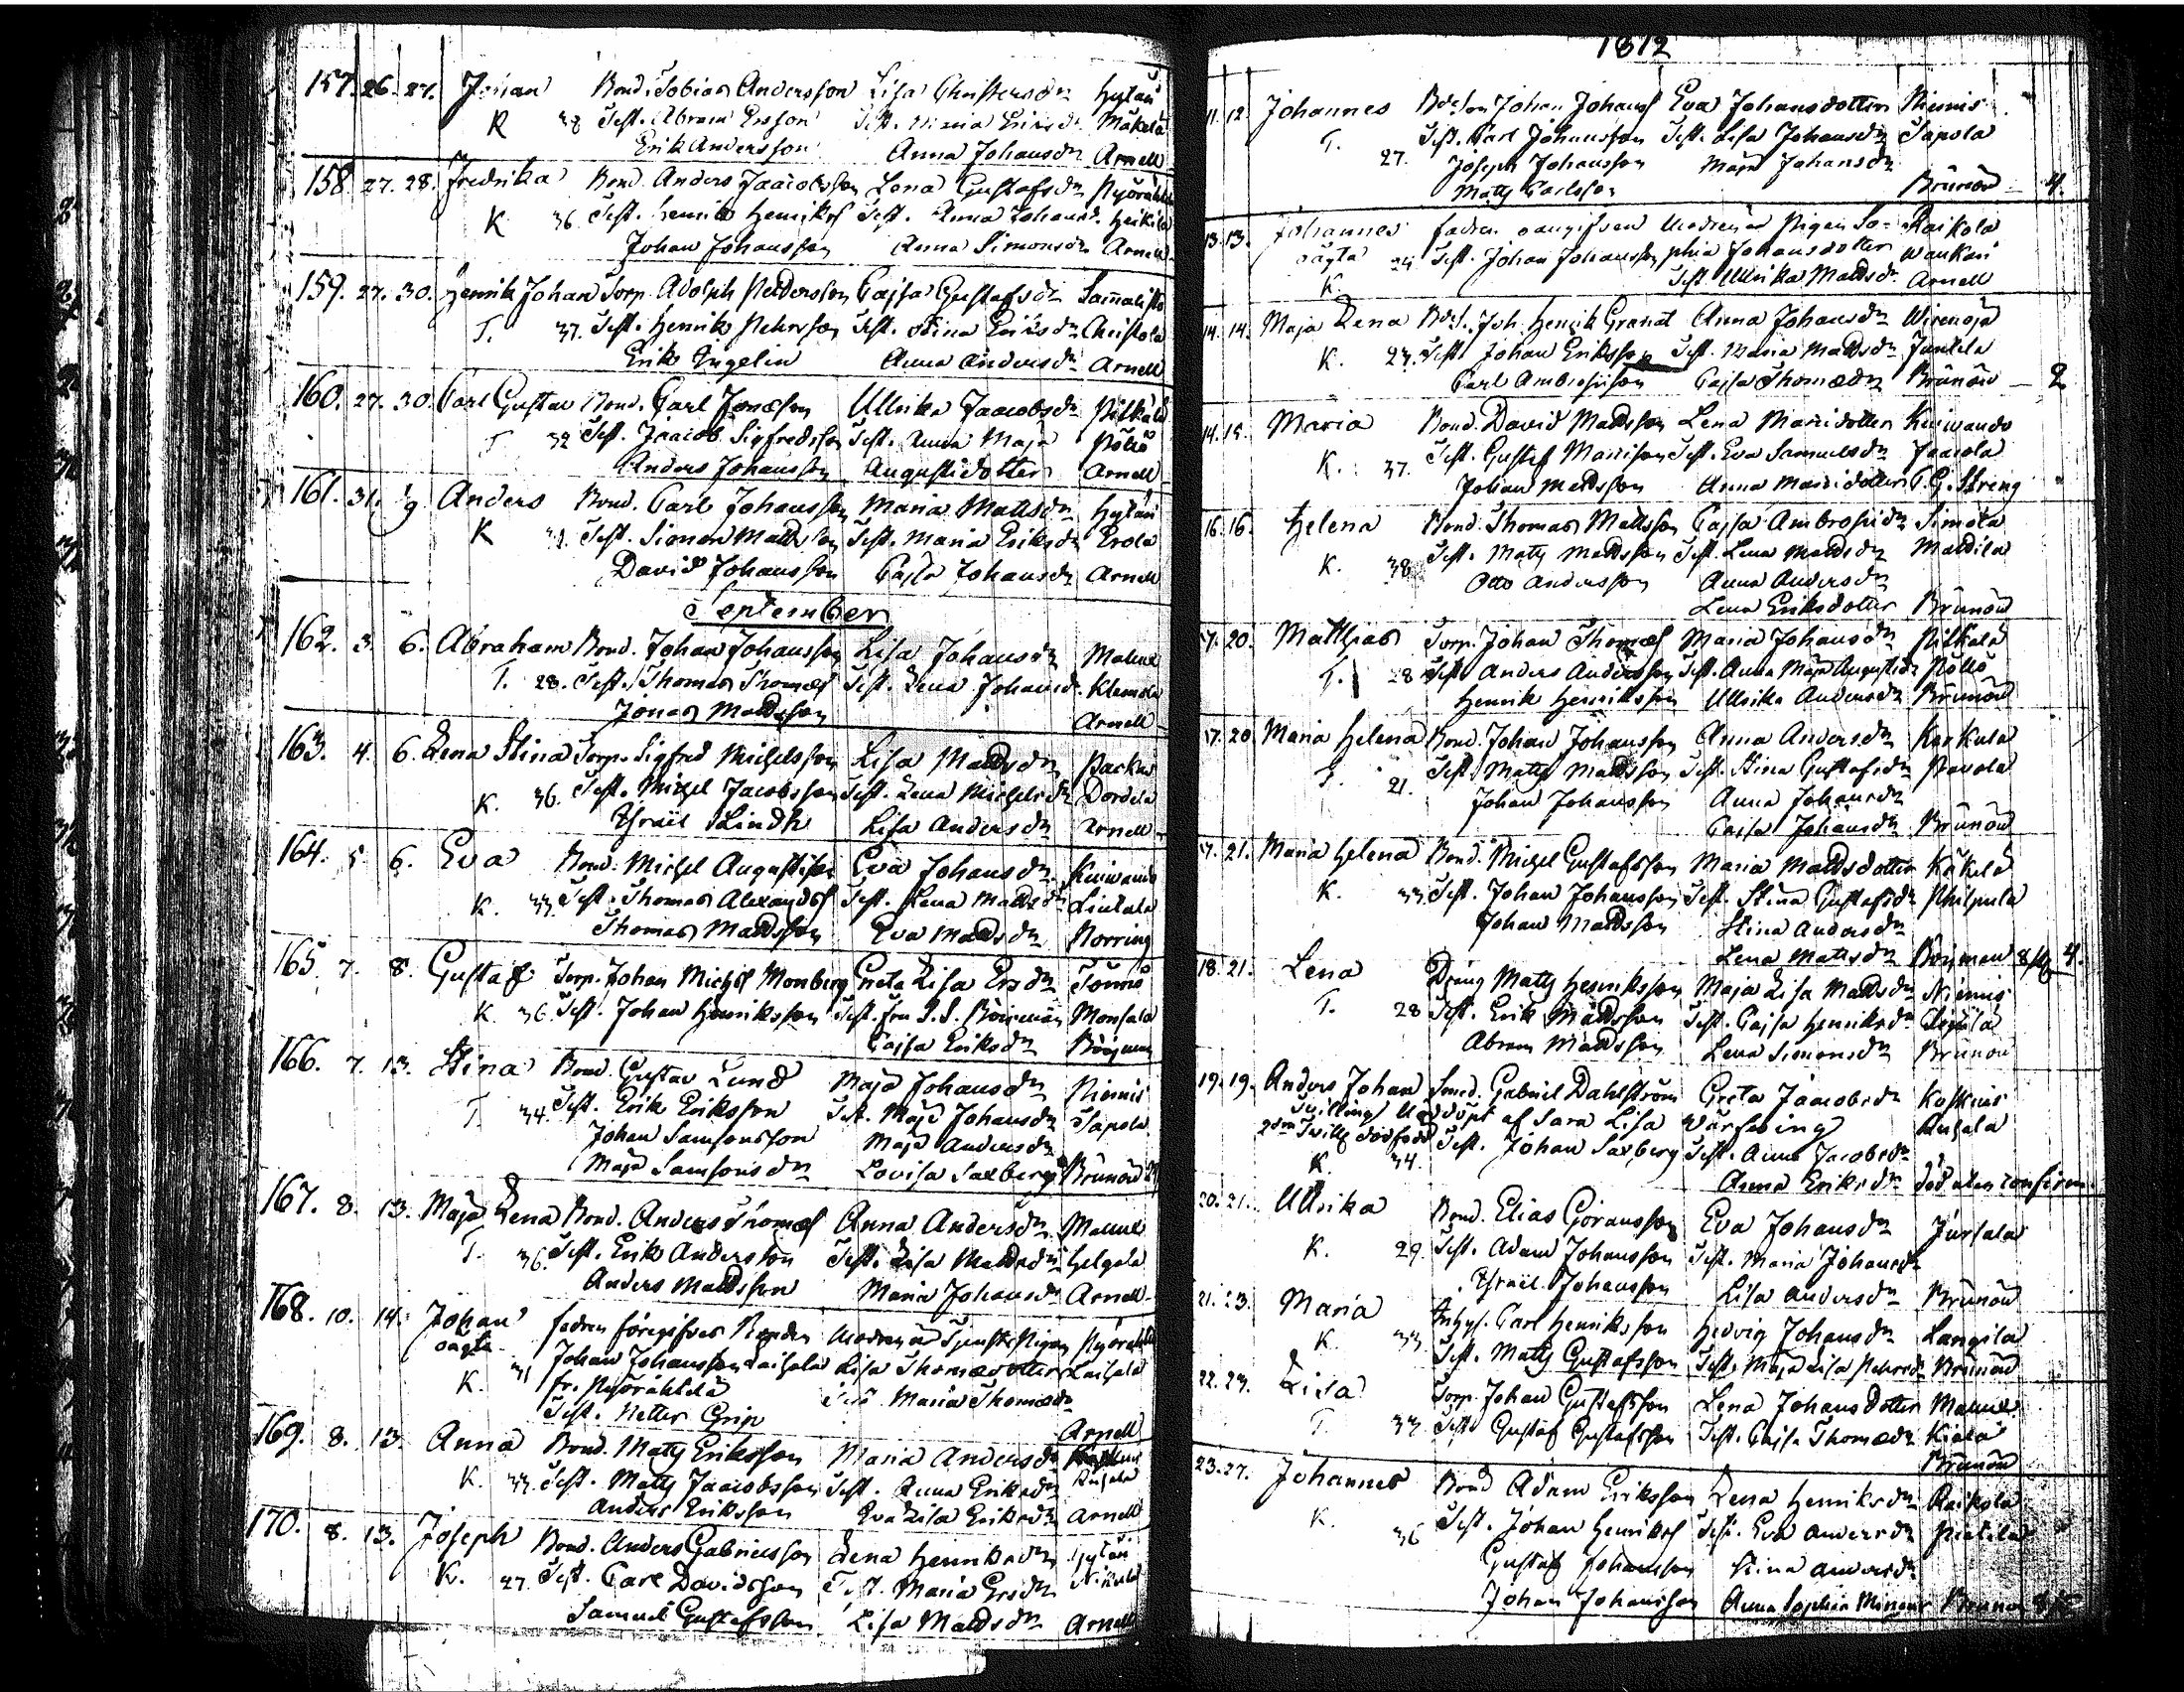 157. 26. 27. Johan Bond. Tobias Andersson Lisa Christersdr Hytäri
K 38 Test. Abram Ersson Test. Maria Eriksdr Mäkelä
Erik Andersson Anna Johansdr Arnell
158. 27. 28. Fredrika Bond. Anders Jaacobsson Lena Gustafsdr
K 36 Test. Henrik Henriks Test. Anna Johansd. Heikilä
Johan Johansson Anna Simonsdr Arnell
159. 27. 30. Henrik Johan Torp. Adolph Peddersson Cajsa Gustafsdr
T. 37. Test. Henrik Pehrsson Test. Stina Eriksdr Christola
Erik Engelin Anna Andersdr Arnell
160. 27. 30. Carl Gustav Bond. Carl Jonæson Ullrika Jaacobsdr Pitkälä
T 32 Test. Jaacob Sigfredsson Test. Anna Maja Pölkö
Anders Johansson Augustidotter Arnell
161. 31. 1/9 Anders Bond. Carl Johansson Maria Mattsdr Hytäri
K Test. Simon Mattsson Test. Maria Eriksdr Erola
David Johansson Cajsa Johansdr Arnell
September
162. 3. 6. Abraham Bond. Johan Johansson Lisa Johansdr
T. 28. Test. Thomas Thomæs Test. Lena Johansd. Klemola
Jonas Mattsson Arnell
163. 4. 6. Lena Stina Torp. Sigfred Michelsson Lisa Mattsdr
K. 36. Test. Michel Jacobsson Test. Lena Michelsdr
Israel Lindh Lisa Andersdr Arnell
164. 5. 6. Eva Bond. Michel Augustison Eva Johansdr
K. 33 Test. Thomas Alexands Test. Lena Mattsdr
Thomas Mattsson Eva Mattsdr Norring
165. 7. 8. Gustaf Torp. Johan Michels Monberg Greta Lisa Ersdr
K. 36. Test. Johan Henriksson Test. fru Monsala
Cajsa Eriksdr
166. 7. 13. Stina Bond. Gustav Lund Maja Johansdr Niemis
T. 34. Test. Erik Eriksson Test. Maja Johansdr Sapola
Johan Samsonsson Maja Andersdr
Maja Samsonsdr Lovisa Saxberg Brunow
167. 8. 13. Maja Lena Bond. Anders Thomæs Anna Andersdr
T. 36. Test. Erik Andersson Test. Lisa Mattsdr
Anders Mattsson Maria Johansdr Arnell
168. 10. 14. Johan fadren föregifves Modren är
oägta Johan Johansson Lisa Thomædotter
K. fr.
Test. Petter Grip Maria Thomædr
Arnell
169. 8. 13. Anna Bond. Matts Eriksson Maria Andersdr
K. 33. Test. Matts Jaacobsson Test. Anna Eriksdr
Anders Eriksson Eva Lisa Eriksdr Arnell
170. 8. 13. Joseph Bond. Anders Gabrielsson Lena Henriksdr Hytäri
K. 27. Test. Carl Davidsson Test. Maria Ersdr
Samuel Gustafsson Lisa Mattsdr Arnell
1812
11. 12. Johannes Bdeson Johan Johans Eva Johansdotter Niemis
T. 27. Test. Carl Johansson Test. Lisa Johansdr Sapola
Joseph Johansson Maja Johansdr
Matts Carlsson Brunow 4.
13. 13. Johannes fadren oangifven Modren är Pigan So- Raikola
oägta 24 Test. Johan Johansson phia Johansdotter
K. Test. Ullrika Mattsdr Arnell
14. 14. Maja Lena Bdes. Joh. Henrik Granat Anna Johansdr Wirenoja
K. 27. Test. Johan Eriksson Test. Maria Mattsdr Junkila
Carl Ambrosiison Cajsa Thomædr Brunow 2
14. 15. Maria Bond. David Mattsson Lena Maridotter
K. 37. Test. Gustaf Test. Eva Samuelsdr
Johan Mattsson Anna C. G. Streng
16. 16. Helena Bond. Thomas Mattsson Cajsa Ambrosiidr Simola
K. 38 Test. Matts Mattsson Test. Lena Mattsdr Mattila
Otto Andersson Anna Andersdr
Lena Eriksdotter Brunow
17. 20. Matthias Torp. Johan Thomæs Maria Johansdr Pitkälä
T. 28 Test Anders Andersson Test. Anna Maja Augustidr Pölkö
Henrik Henriksson Ullrika Andersdr Brunow
17. 20. Maria Helena Bond. Johan Johansson Anna Andersdr Karkula
T. 21. Test. Matts Mattsson Test. Stina Gustafsdr Pavola
Johan Johansson Anna Johansdr
Cajsa Johansdr Brunow
17. 21. Maria Helena Bond. Michel Gustafsson Maria Mattsdotter Käkelä
K. 33. Test. Johan Johansson Test. Stina Gustafsdr Philpula
Johan Mattsson Stina Andersdr
Lena Mattsdr 4.
18. 21. Lena Dräng Matts Henriksson Maja Lisa Mattsdr Niemis
T. 28 Test. Erik Mattsson Test. Cajsa Henriksdr
Abram Mattsson Lena Simonsdr Brunow
19. 19. Anders Johan Smed. Gabriel Dahlström Greta Jaacobsdr Koskuis
Tvilling Nöddöpt af Sara Lisa Wärfving Anjala
2dra Tvill. dödfödd Test. Johan Saxberg Test. Anna Jacobsdr
K. 34. Anna Eriksdr död utan confirm.
20. 21. Ullrika Bond. Elias Göransson Eva Johansdr Jursala
K. 29. Test. Adam Johansson Test. Maria Johansdr
Israel Johansson Lisa Andersdr Brunow
21. 23. Maria Inhys. Carl Henriksson Hedvig Johansdr Langila
K. 33 Test. Matts Gustafsson Test. Maja Lisa Pehrsdr Brunow
22. 23. Lisa Torp. Johan Gustafsson Lena Johansdotter
T. 33 Test. Gustaf Gustafsson Test. Cajsa Thomædr
Brunow
23. 27. Johannes Bond Adam Eriksson Lena Henriksdr Raikola
K. 36 Test. Johan Henriks Test. Eva Andersdr
Gustaf Johansson Stina Andersdr
Johan Johansson Anna Sophia Brunow